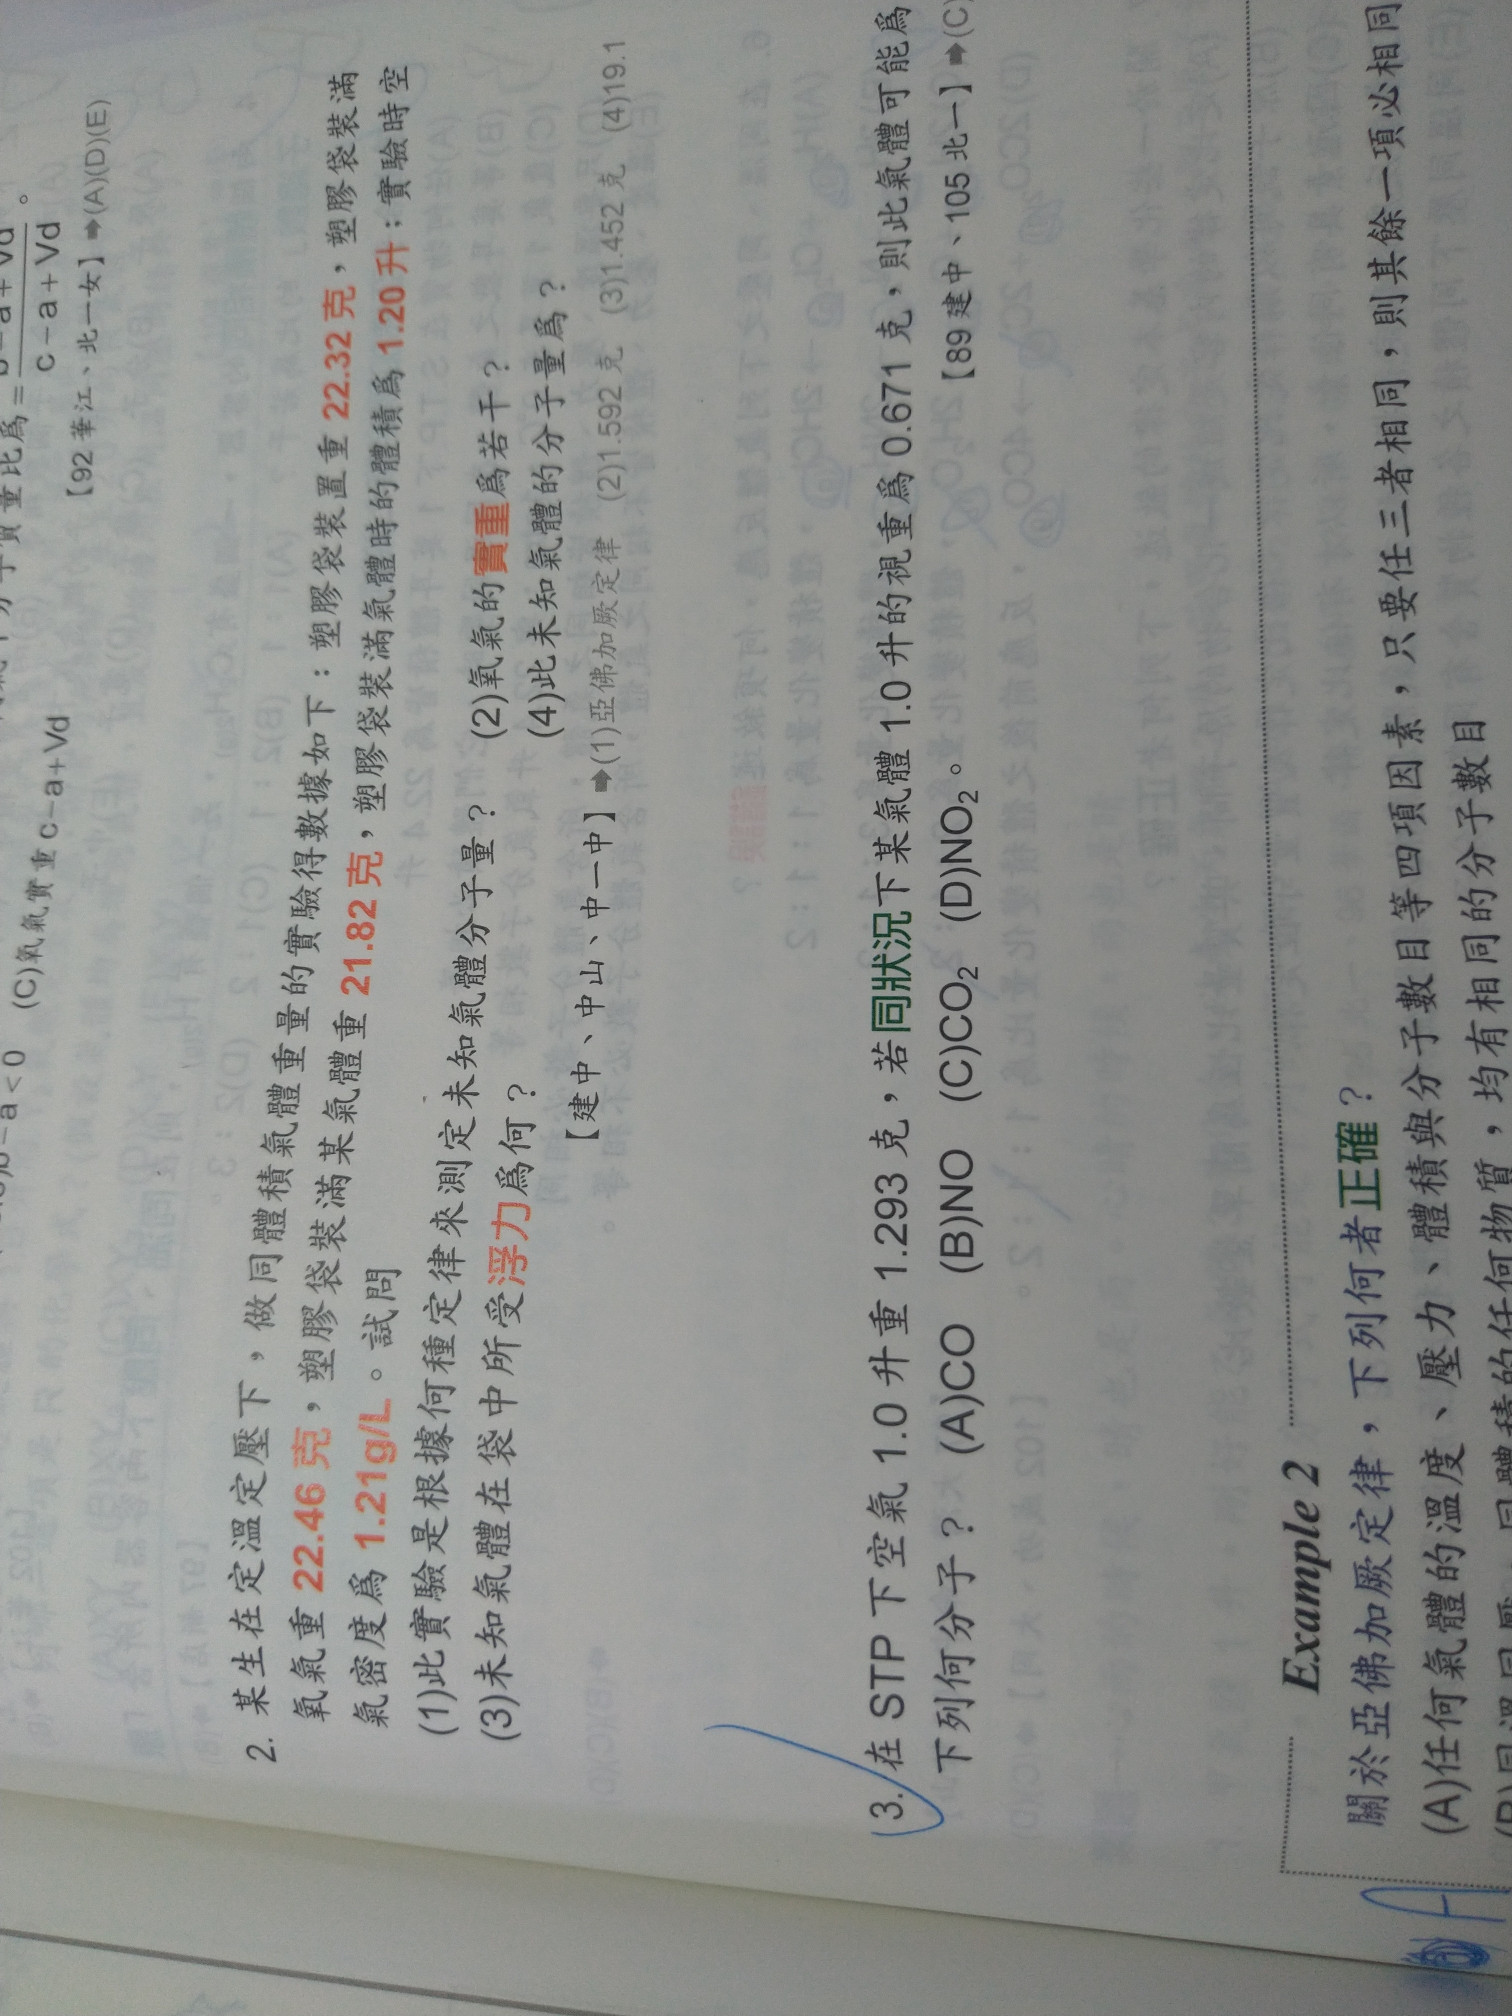 (C)氧氣實重 c－a＋Vd
c－a＋Vd
【92 華江、北一女】➡(A)(D)(E)
2. 某生在定溫定壓下，做同體積氣體重量的實驗得數據如下：塑膠袋裝置重 22.32 克，塑膠袋裝滿
氧氣重 22.46 克，塑膠袋裝滿某氣體重 21.82 克，塑膠袋裝滿氣體時的體積為 1.20 升；實驗時空
氣密度為 1.21g/L。試問
(1)此實驗是根據何種定律來測定未知氣體分子量？ (2)氧氣的實重為若干？
(3)未知氣體在袋中所受浮力為何？ (4)此未知氣體的分子量為？
【建中、中山、中一中】➡(1)亞佛加厥定律 (2)1.592 克 (3)1.452 克 (4)19.1
3. 在 STP 下空氣 1.0 升重 1.293 克，若同狀況下某氣體 1.0 升的視重為 0.671 克，則此氣體可能為
下列何分子？ (A)CO (B)NO (C)CO₂ (D)NO₂。 【89 建中、105 北一】➡(C)
Example 2
關於亞佛加厥定律，下列何者正確？
(A)任何氣體的溫度、壓力、體積與分子數目等四項因素，只要任三者相同，則其餘一項必相同
(B)同溫同壓，同體積的任何物質，均有相同的分子數目
A